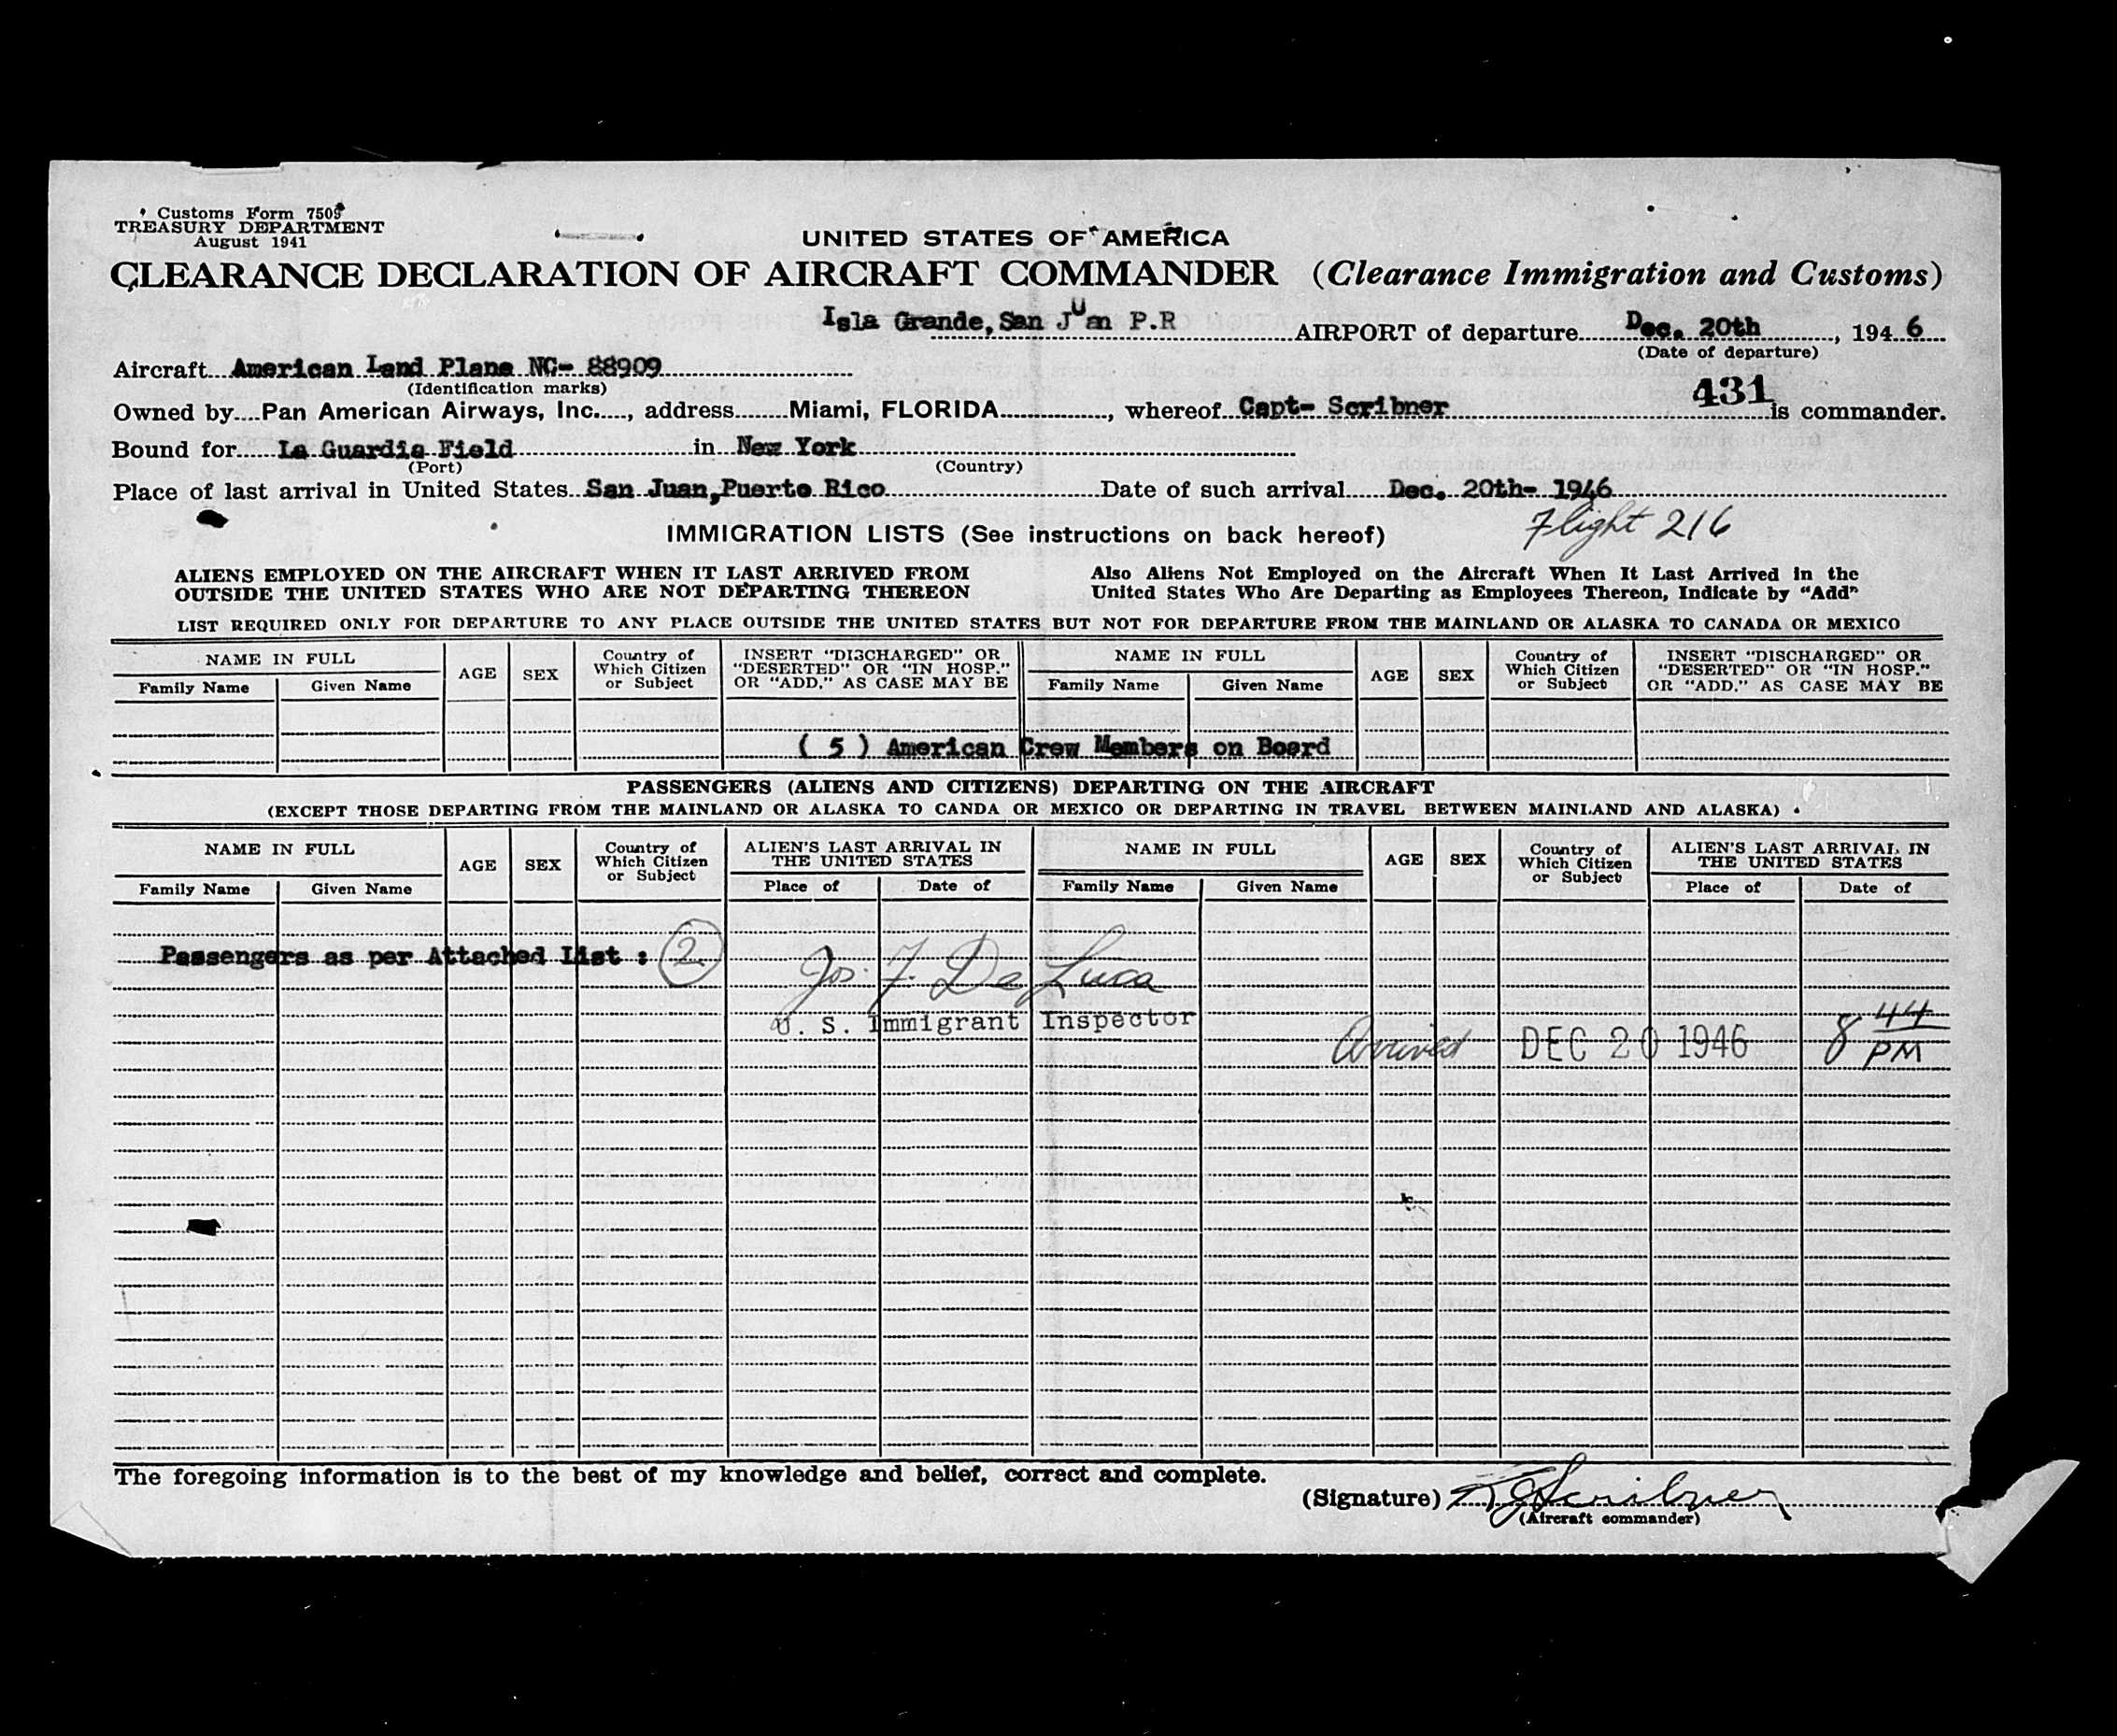 Customs Form 7509
TREASURY DEPARTMENT
August 1941
UNITED STATES OF AMERICA
CLEARANCE DECLARATION OF AIRCRAFT COMMANDER (Clearance Immigration and Customs)
Isla Grande, San Juan P.R AIRPORT of departure Dec. 20th, 1946
(Date of departure)
Aircraft American Land Plane NC- 88909
(Identification marks)
431
Owned by Pan American Airways, Inc., address Miami, FLORIDA, whereof Capt- Scribner is commander.
Bound for La Guardia Field in New York
(Port) (Country)
Place of last arrival in United States San Juan, Puerto Rico Date of such arrival Dec. 20th- 1946
IMMIGRATION LISTS (See instructions on back hereof) Flight 216
ALIENS EMPLOYED ON THE AIRCRAFT WHEN IT LAST ARRIVED FROM
OUTSIDE THE UNITED STATES WHO ARE NOT DEPARTING THEREON
Also Aliens Not Employed on the Aircraft When It Last Arrived in the
United States Who Are Departing as Employees Thereon, Indicate by "Add"
LIST REQUIRED ONLY FOR DEPARTURE TO ANY PLACE OUTSIDE THE UNITED STATES BUT NOT FOR DEPARTURE FROM THE MAINLAND OR ALASKA TO CANADA OR MEXICO
NAME IN FULL
Family Name Given Name
AGE
SEX
Country of
Which Citizen
or Subject
INSERT "DISCHARGED" OR
"DESERTED" OR "IN HOSP."
OR "ADD," AS CASE MAY BE
NAME IN FULL
Family Name Given Name
AGE
SEX
Country of
Which Citizen
or Subject
INSERT "DISCHARGED" OR
"DESERTED" OR "IN HOSP."
OR "ADD." AS CASE MAY BE
( 5 ) American Crew Members on Board
PASSENGERS (ALIENS AND CITIZENS) DEPARTING ON THE AIRCRAFT
(EXCEPT THOSE DEPARTING FROM THE MAINLAND OR ALASKA TO CANDA OR MEXICO OR DEPARTING IN TRAVEL BETWEEN MAINLAND AND ALASKA)
NAME IN FULL
Family Name Given Name
AGE
SEX
Country of
Which Citizen
or Subject
ALIEN'S LAST ARRIVAL IN
THE UNITED STATES
Place of Date of
NAME IN FULL
Family Name Given Name
AGE
SEX
Country of
Which Citizen
or Subject
ALIEN'S LAST ARRIVAL IN
THE UNITED STATES
Place of Date of
Passengers as per Attached List : 2
Jos. F. De Luca
U. S. Immigrant Inspector
Arrived DEC 20 1946 8 44 PM
The foregoing information is to the best of my knowledge and belief, correct and complete.
(Signature) Scribner
(Aircraft commander)